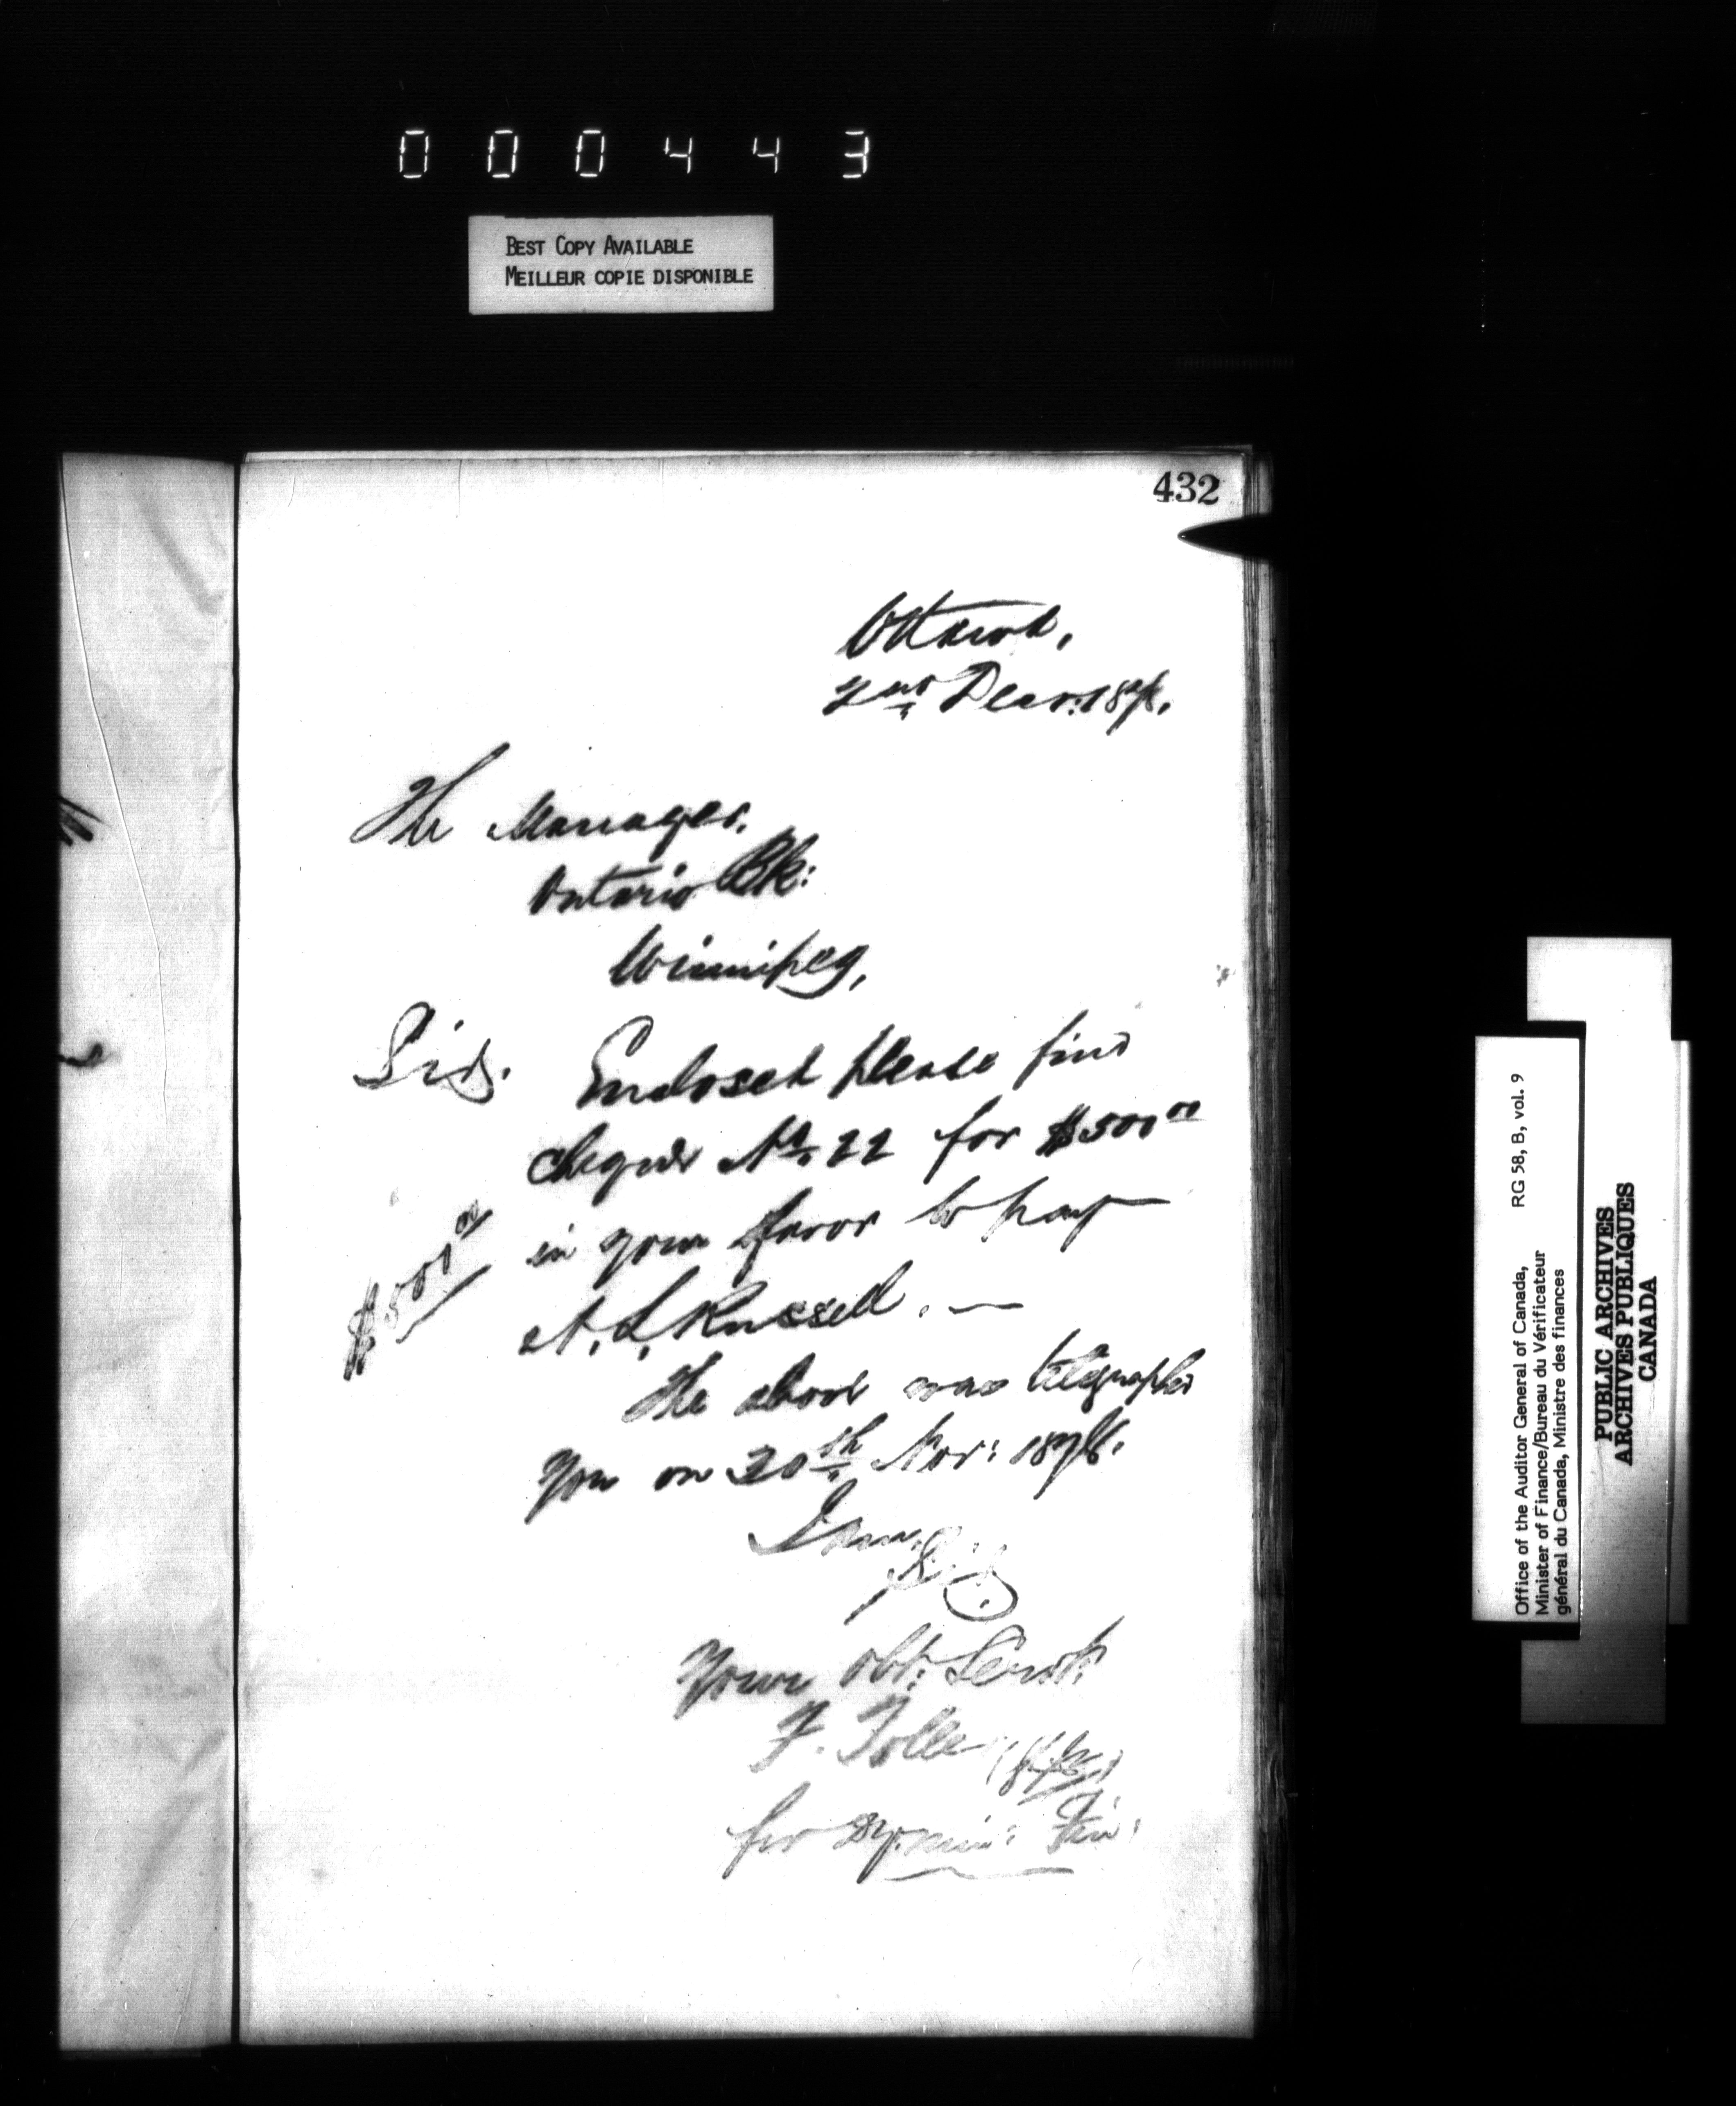 000443
BEST COPY AVAILABLE
MEILLEUR COPIE DISPONIBLE
432
Ottawa,
2nd Decr: 1878.
The Manager.
Ontario Bk:
Winnipeg,
Sir. Enclosed please find
cheque No. 22 for $500 00
in your favor to pay
A. L. Russell. —
$500 00
The above was telegraphed
you on 30th Nov: 1878.
I am,
Sir
Your obt. Servt.
F. Toller
for Dy. Min: Fin:
Office of the Auditor General of Canada, RG 58, B, vol. 9
Minister of Finance/Bureau du Vérificateur
général du Canada, Ministre des finances
PUBLIC ARCHIVES
ARCHIVES PUBLIQUES
CANADA